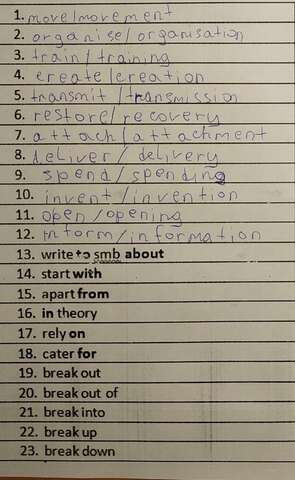 1. move/movement
2. organise/organisation
3. train/training
4. create/creation
5. transmit/transmission
6. restore/recovery
7. attach/attachment
8. deliver/delivery
9. spend/spending
10. invent/invention
11. open/opening
12. inform/information
13. write to smb about
14. start with
15. apart from
16. in theory
17. rely on
18. cater for
19. break out
20. break out of
21. break into
22. break up
23. break down